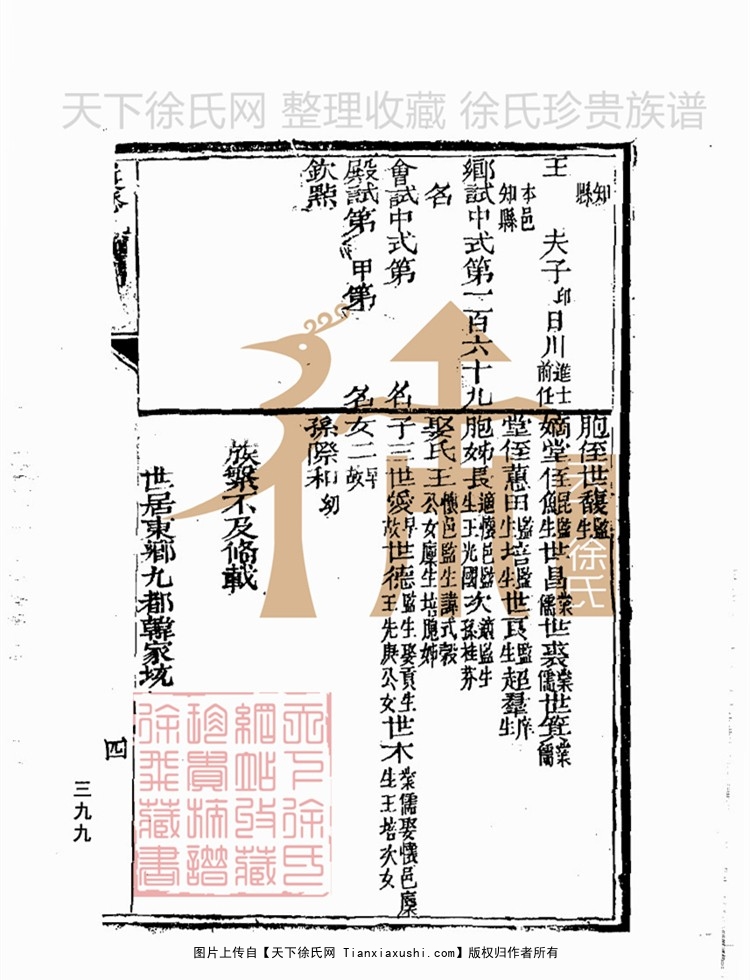 天下徐氏网 整理收藏 徐氏珍贵族谱
知縣
王 夫子印日川進士前任
本邑知縣
鄉試中式第一百六十九
名
會試中式第 名
殿試第 甲第 名
欽點
胞侄世馥監生
嫡堂侄焜監生世昌業儒世裘業儒世箕業儒
堂侄蕙田監生培監生世良監生超羣庠生
胞姊長適懷邑監生王光國次適監生孫桂芬
娶氏王懷邑監生諱式穀公女廩生培胞姊
子三世愛早故世德監生娶貢生王先庚公女世木業儒娶懷邑廩生王培次女
女二早故
孫際和幼
族繁不及俻載
世居東鄉九都韓家坑
四
三九九
徐氏
天下徐氏網站收藏珍貴族譜徐飛藏書
图片上传自【天下徐氏网 Tianxiaxushi.com】版权归作者所有